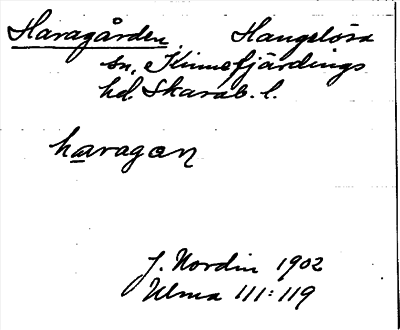 Haragården Hangelösa
sn, Kinnefjärdings
hd. Skarab. l.
haragan
J. Nordin 1902
Ulma 111:119